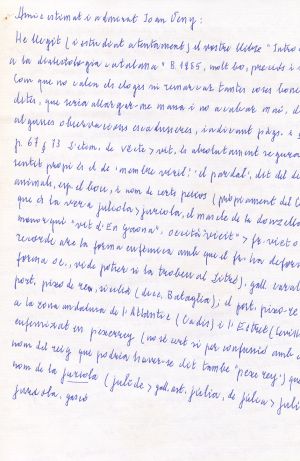 Amic estimat i admirat Joan Veny:
He llegit (i estudiat atentament) el vostre llibre "Intro
a la dialectologia catalana" B. 1985, molt bo, precís i
Com que no calen els elogis ni remarcar tantes coses bones
dites, que seria allargar-me massa i no acabar mai,
algunes observacions escadusseres, indicant pàgs. i
p. 67 g 73 L'etim. de vecte > vit, és absolutament segura
sentit propi és el de 'membre viril', 'el pardal', dit del
animals, esp. el bou, i nom de certs peixos (pròpiament del
que és la vera juliola > juriola, el mascle de la donzella
menorquí "vit d'En Gaona", occità "vieit" > fr. viet o
recorde ara la forma eufèmica amb que el fr. ha defor
forma oc., vide potser si la trobeu al Litré), gall.
port. peixe de rei, sicilià (dice. Bataglia), el port. peixe-re
a la zona andalusa de l'Atlàntic (Cadis) i l'Estret (Sevill
eufemitzat en pexerrey (no sé cert si per confusió amb
nom del reig que podria haver-se dit també "peix rey")
nom de la juriola (julide > gall. ast. júlia, de júlia > juli
juriola, gascó